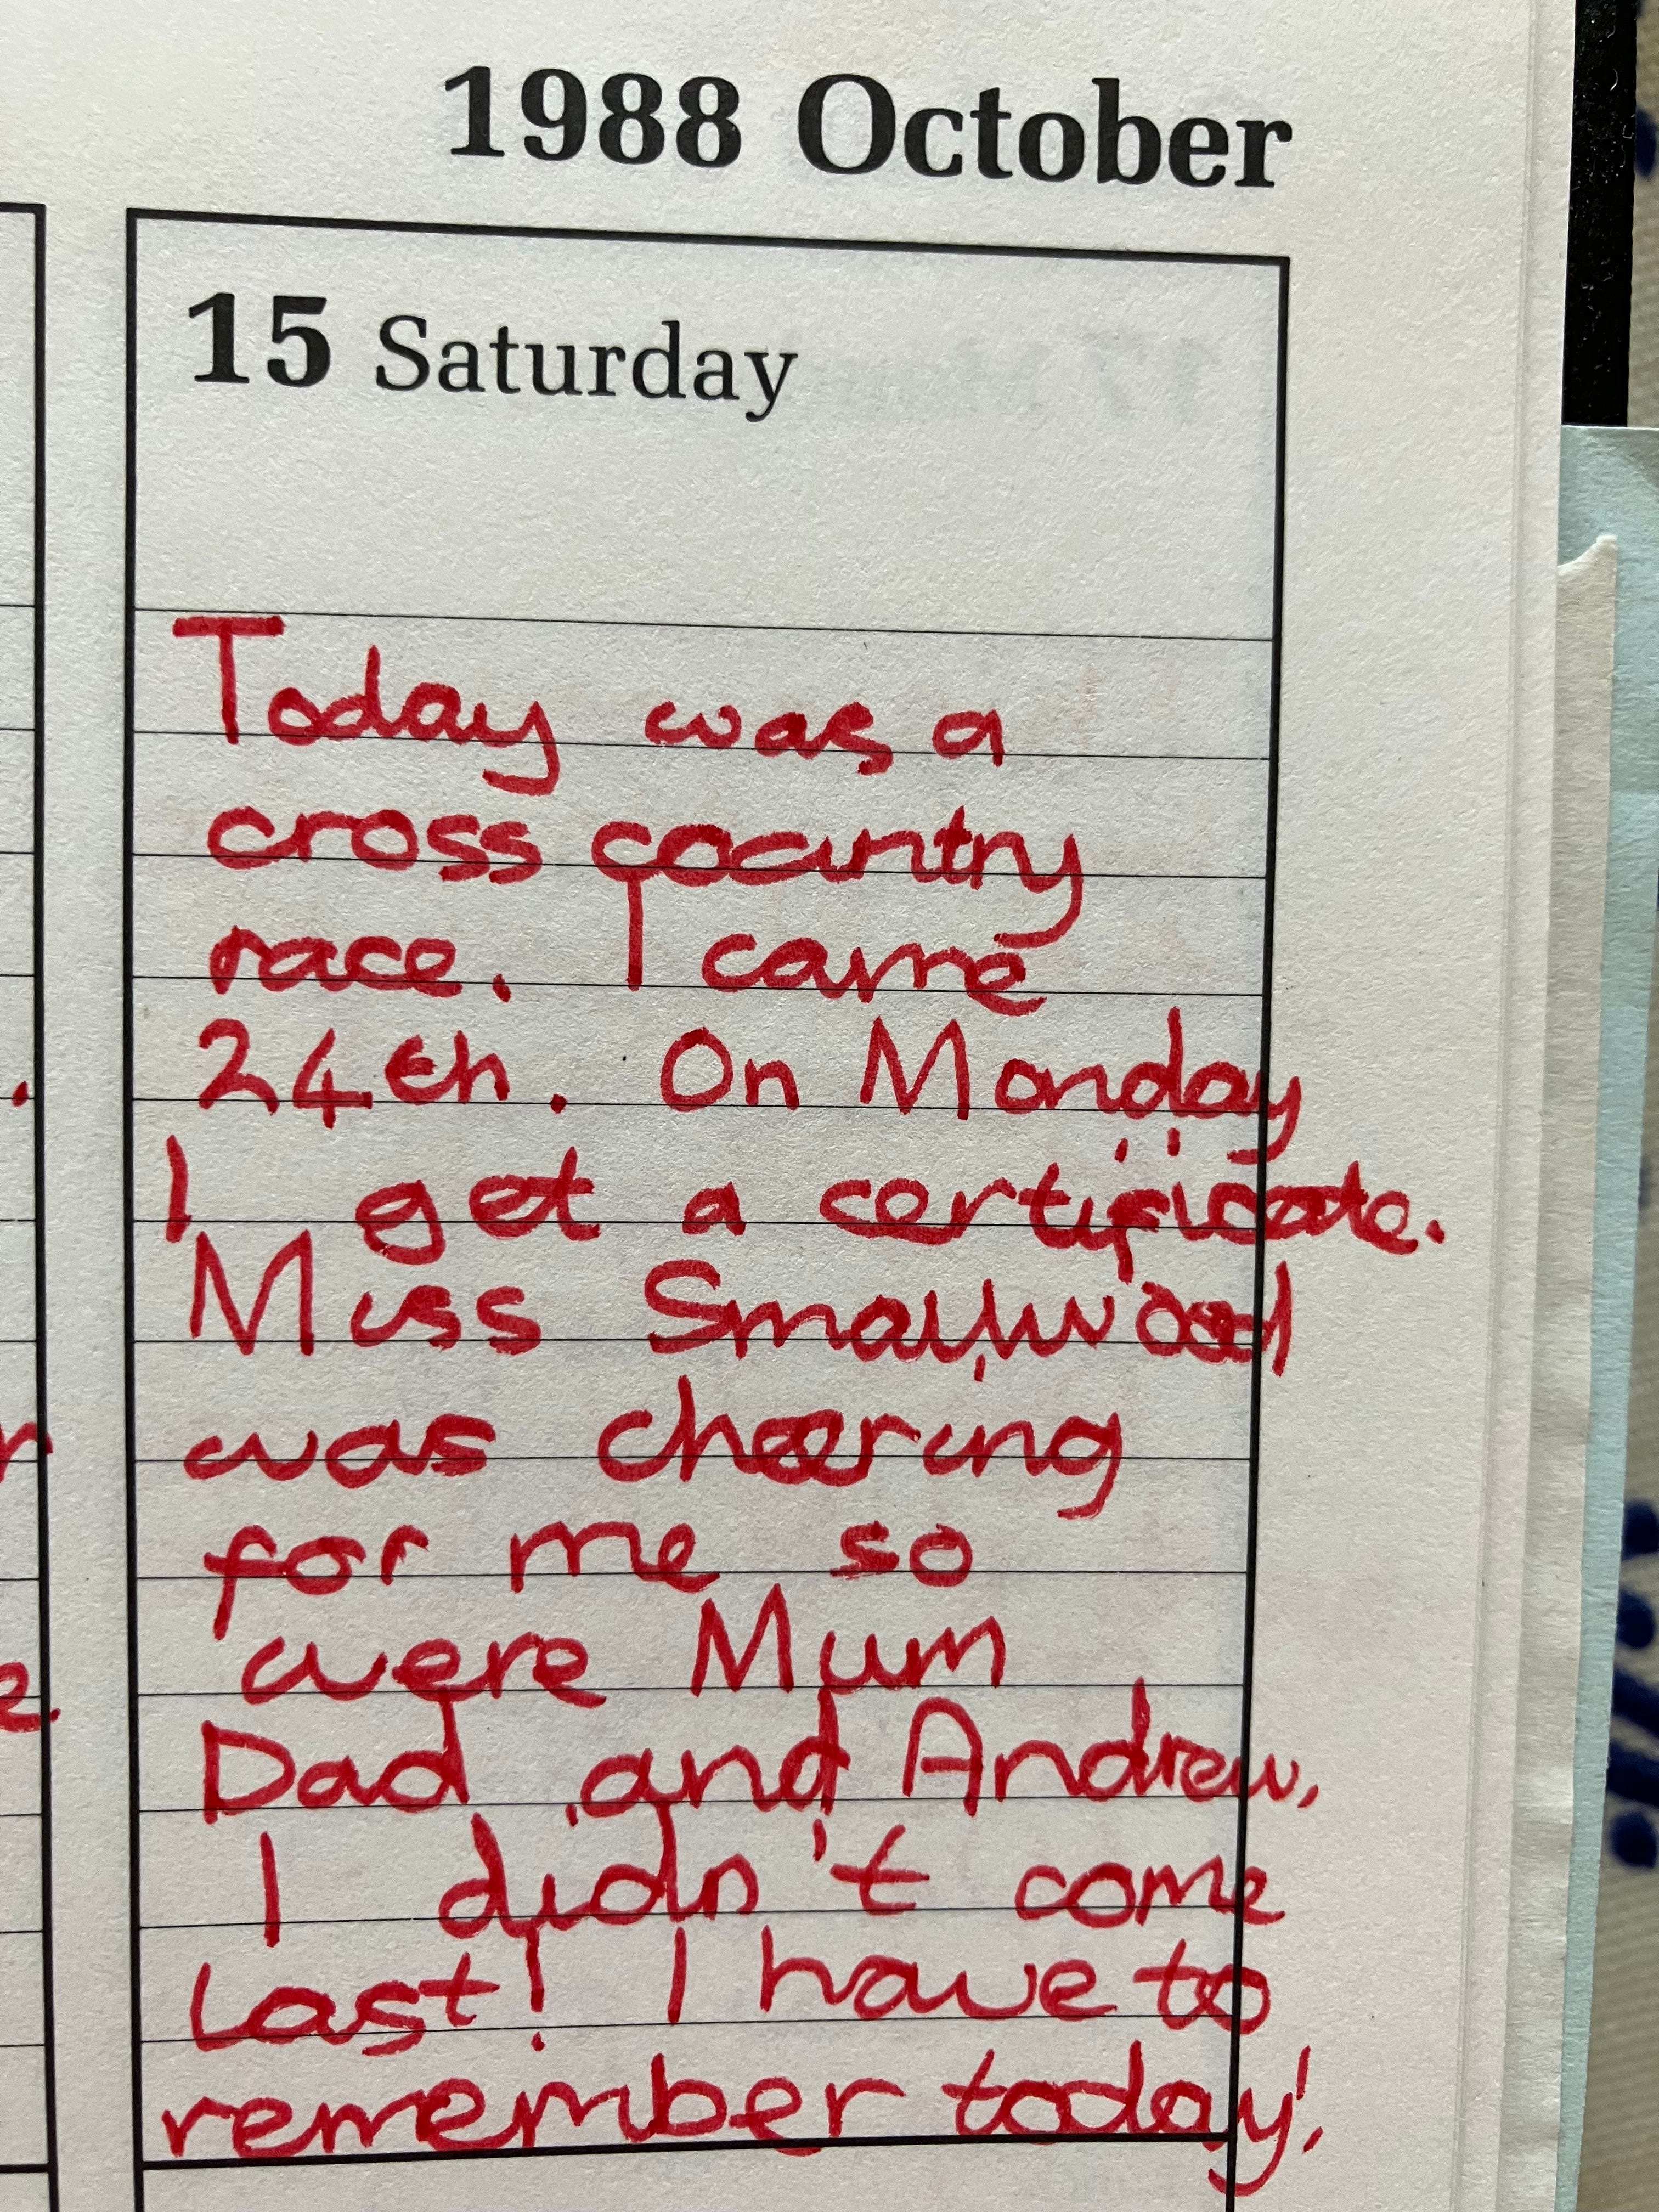 1988 October
15 Saturday
Today was a
cross country
race. I came
24th. On Monday
I get a certificate.
Miss Smallwood
was cheering
for me so
were Mum
Dad and Andrew.
I didn't come
Last! I have to
remember today!